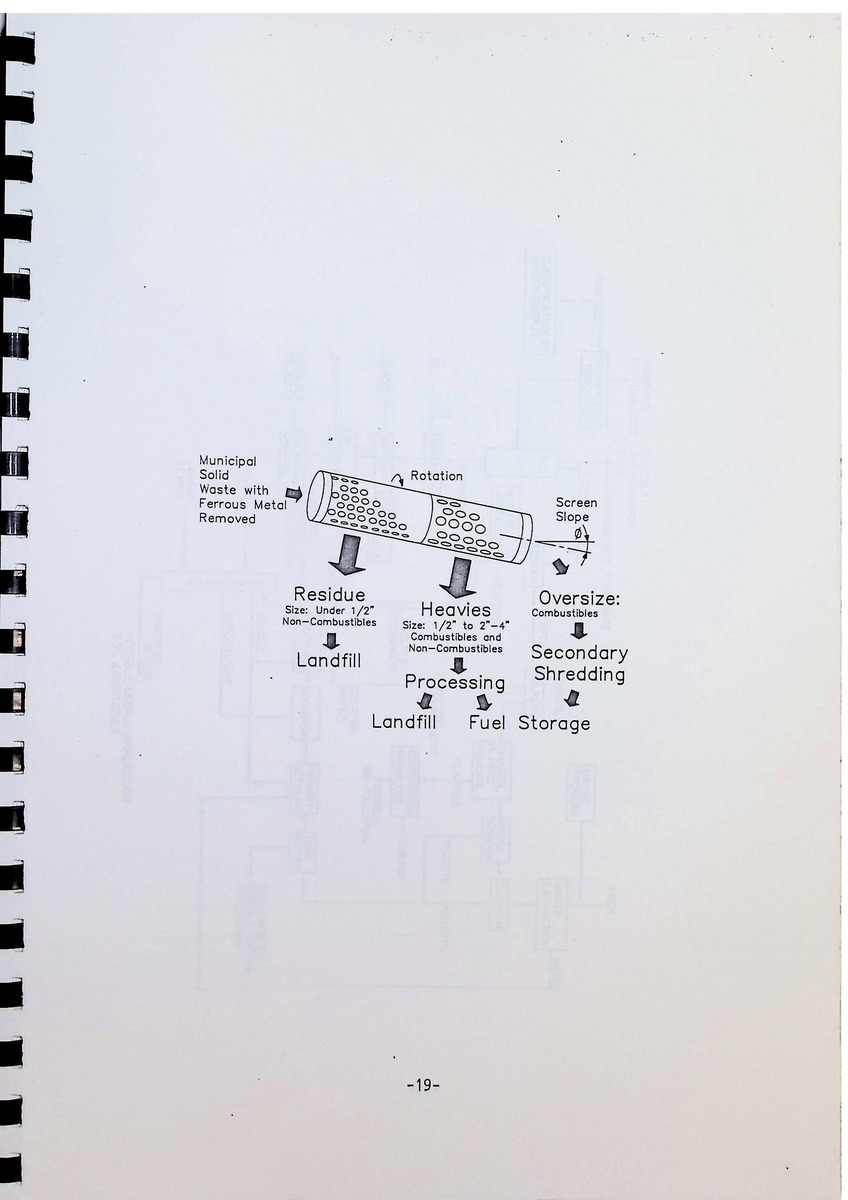 Municipal
Solid
Waste with
Ferrous Metal
Removed
Rotation
Screen
Slope
Ø
Residue
Size: Under 1/2"
Non-Combustibles
Landfill
Heavies
Size: 1/2" to 2"-4"
Combustibles and
Non-Combustibles
Processing
Landfill
Fuel Storage
Oversize:
Combustibles
Secondary
Shredding
-19-